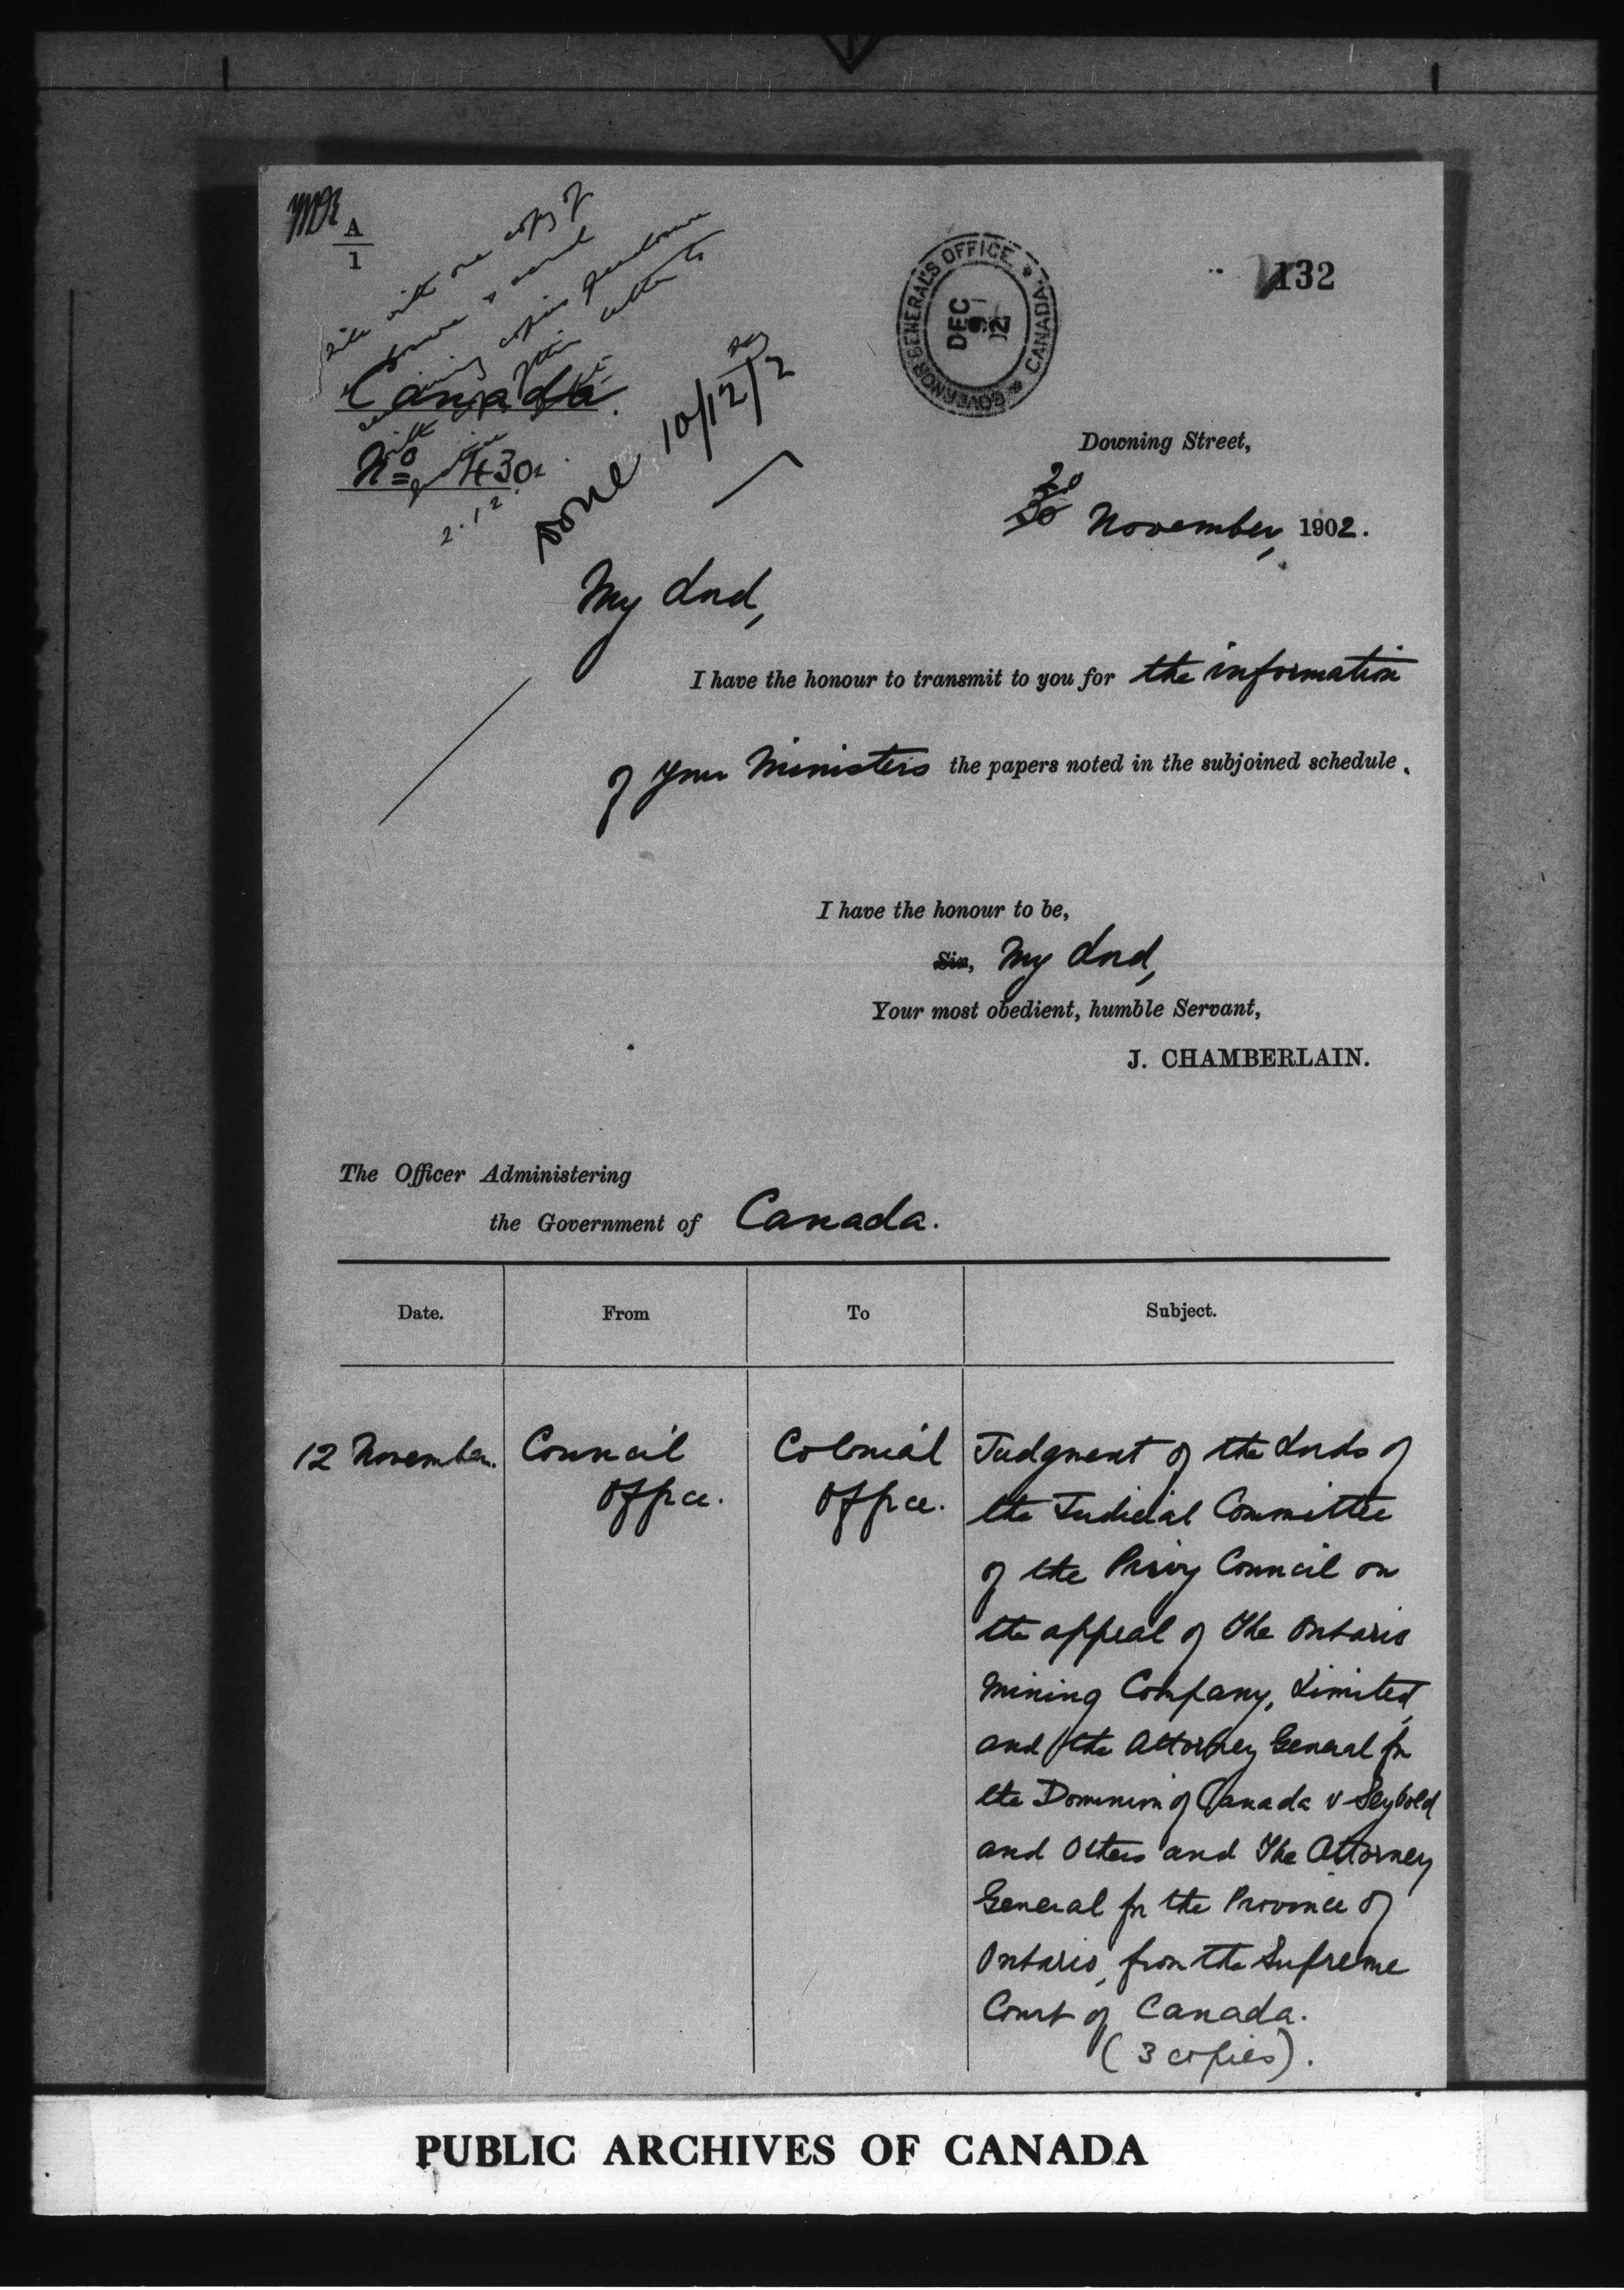 A
1
132
GOVERNOR GENERAL'S OFFICE * CANADA *
DEC
9
02
Canada.
No 430.
Done 10/12/2
Downing Street,
20 November, 1902.
My Lord,
I have the honour to transmit to you for the information
of your Ministers the papers noted in the subjoined schedule.
I have the honour to be,
Sir, My Lord,
Your most obedient, humble Servant,
J. CHAMBERLAIN.
The Officer Administering
the Government of Canada.
Date. From To Subject.
12 November. Council Office. Colonial Office. Judgment of the Lords of
the Judicial Committee
of the Privy Council on
the appeal of The Ontario
Mining Company, Limited,
and the Attorney General for
the Dominion of Canada v Seybold
and Others and The Attorney
General for the Province of
Ontario, from the Supreme
Court of Canada.
(3 copies).
PUBLIC ARCHIVES OF CANADA